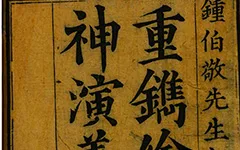 鍾伯敬先生
重鐫
神演義